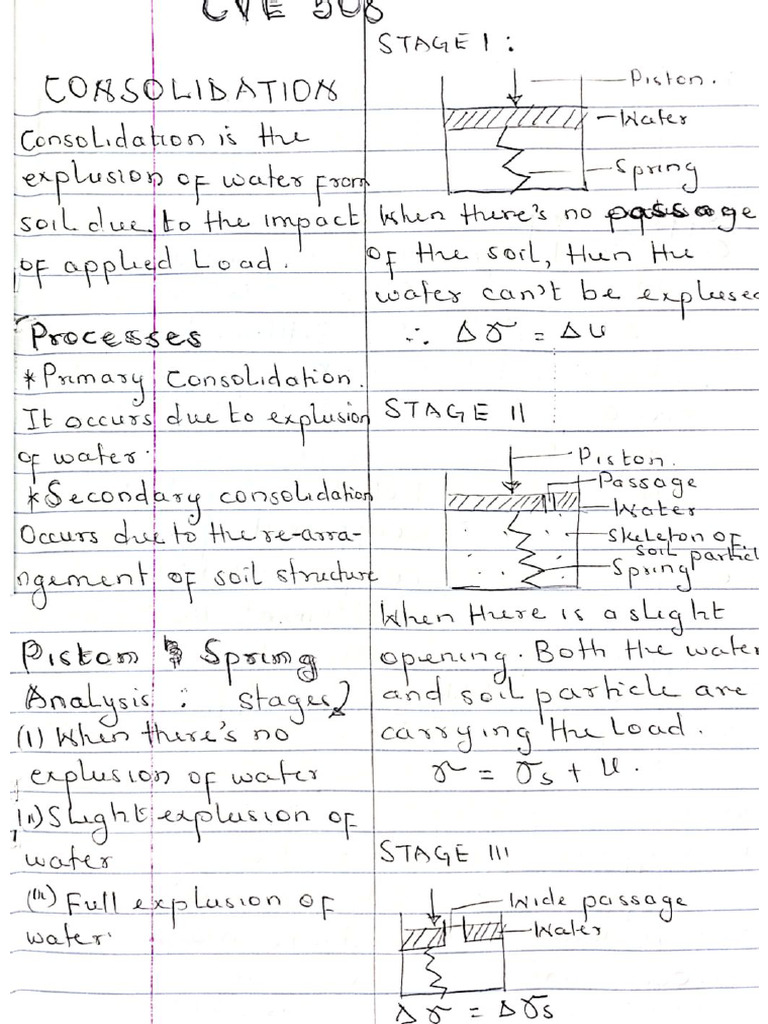 CVE 508
CONSOLIDATION
Consolidation is the
explusion of water from
soil due to the impact
of applied Load.
Processes
*Primary Consolidation.
It occurs due to explusion
of water.
*Secondary consolidation
Occurs due to the re-arra-
ngement of soil structure
Piston & Spring
Analysis : stages
(I) When there's no
explusion of water
(II) Slight explusion of
water
(III) Full explusion of
water.
STAGE I :
Piston.
Water
Spring
When there's no passage
of the soil, then the
water can't be explused
∴ Δσ = Δu
STAGE II
Piston.
Passage
Water
Skeleton of
soil particl
Spring
When there is a slight
opening. Both the water
and soil particle are
carrying the load.
σ = σs + u.
STAGE III
Wide passage
Water
Δσ = Δσs